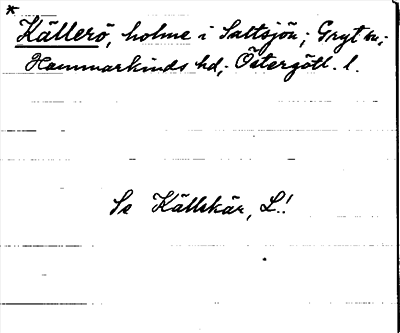 * Källerö, holme i Saltsjön; Gryt sn;
Hammarkinds hd, Östergötl. l.
Se Källskär, L.!